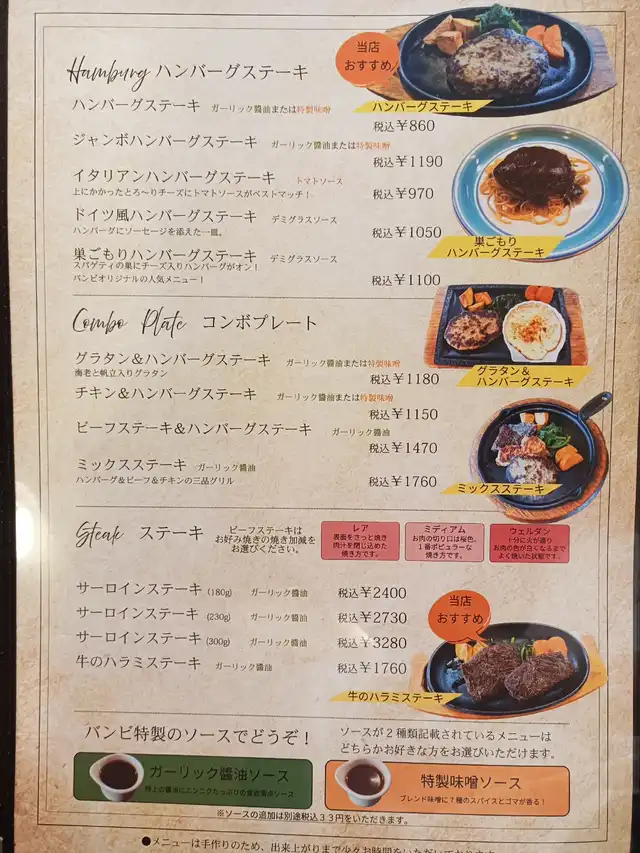 当店
おすすめ
Hamburg ハンバーグステーキ
ハンバーグステーキ
ハンバーグステーキ ガーリック醬油または特製味噌
税込¥860
ジャンボハンバーグステーキ ガーリック醬油または特製味噌
税込¥1190
イタリアンハンバーグステーキ トマトソース
上にかかったとろ〜りチーズにトマトソースがベストマッチ！
税込¥970
ドイツ風ハンバーグステーキ デミグラスソース
ハンバーグにソーセージを添えた一皿。
税込¥1050
巣ごもりハンバーグステーキ デミグラスソース
スパゲティの巣にチーズ入りハンバーグがオン！
バンビオリジナルの人気メニュー！
税込¥1100
巣ごもり
ハンバーグステーキ
Combo Plate コンボプレート
グラタン＆ハンバーグステーキ ガーリック醬油または特製味噌
海老と帆立入りグラタン
税込¥1180
グラタン＆
ハンバーグステーキ
チキン＆ハンバーグステーキ ガーリック醬油または特製味噌
税込¥1150
ビーフステーキ＆ハンバーグステーキ ガーリック醬油
税込¥1470
ミックスステーキ ガーリック醬油
ハンバーグ＆ビーフ＆チキンの三品グリル
税込¥1760
ミックスステーキ
Steak ステーキ
ビーフステーキは
お好み焼きの焼き加減を
お選びください。
レア
表面をさっと焼き
肉汁を閉じ込めた
焼き方です。
ミディアム
お肉の切り口は桜色、
１番ポピュラーな
焼き方です。
ウェルダン
十分に火が通り
お肉の色が白くなるまで
よく焼いた状態です。
サーロインステーキ (180g) ガーリック醬油 税込¥2400
サーロインステーキ (230g) ガーリック醬油 税込¥2730
サーロインステーキ (300g) ガーリック醬油 税込¥3280
牛のハラミステーキ ガーリック醬油 税込¥1760
当店
おすすめ
牛のハラミステーキ
バンビ特製のソースでどうぞ！
ソースが２種類記載されているメニューは
どちらかお好きな方をお選びいただけます。
ガーリック醬油ソース
特上の醬油にニンニクたっぷりの食欲満点ソース
特製味噌ソース
ブレンド味噌に７種のスパイスとゴマが香る！
※ソースの追加は別途税込３３円をいただきます。
●メニューは手作りのため、出来上がりまで少々お時間をいただいております